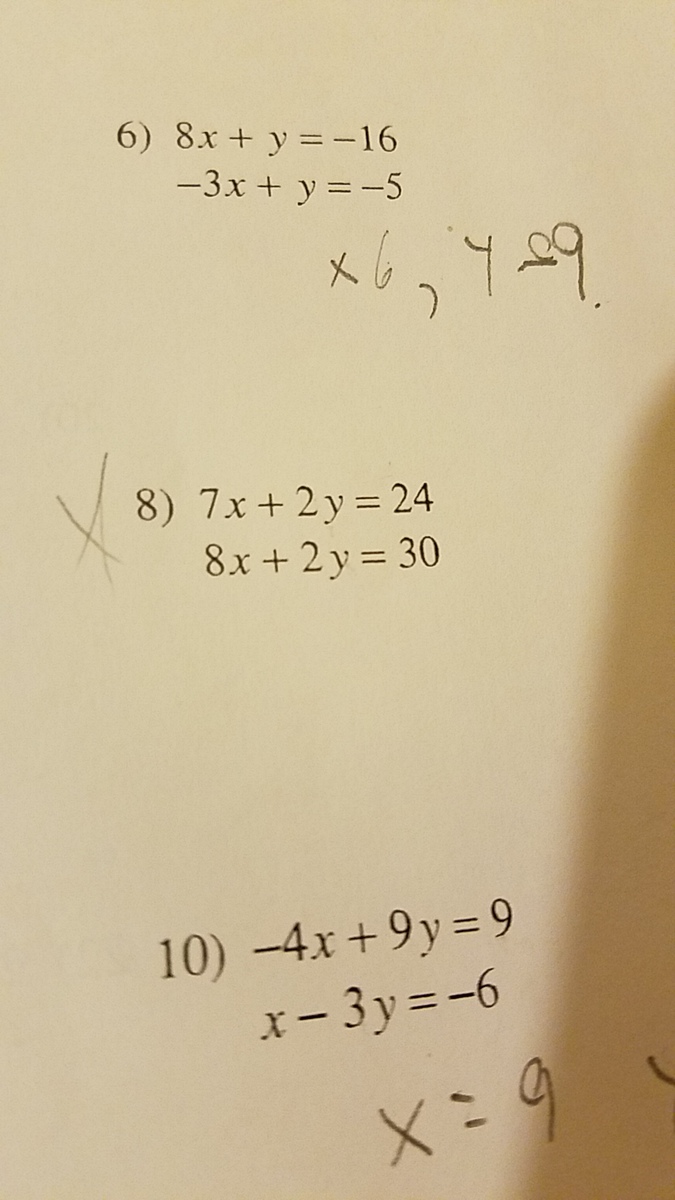 6) 8x + y = −16
−3x + y = −5
x 6, y
8) 7x + 2y = 24
8x + 2y = 30
10) −4x + 9y = 9
x − 3y = −6
x = 9